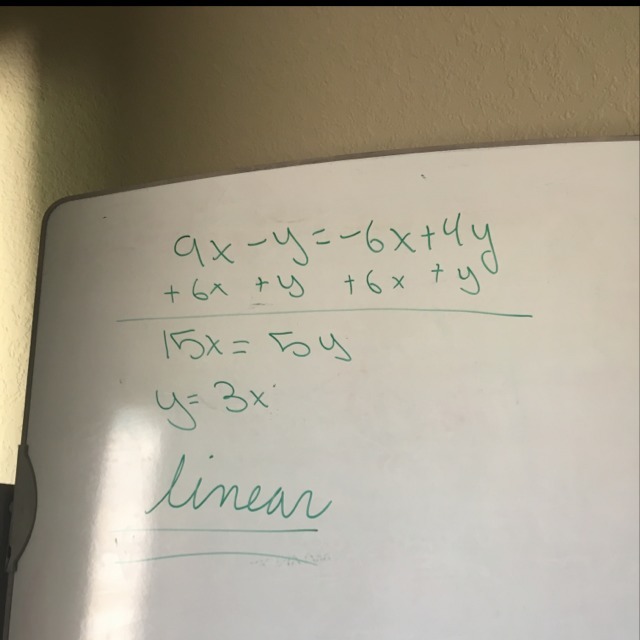 9x - y = -6x + 4y
+ 6x + y + 6x + y
15x = 5y
y = 3x
linear